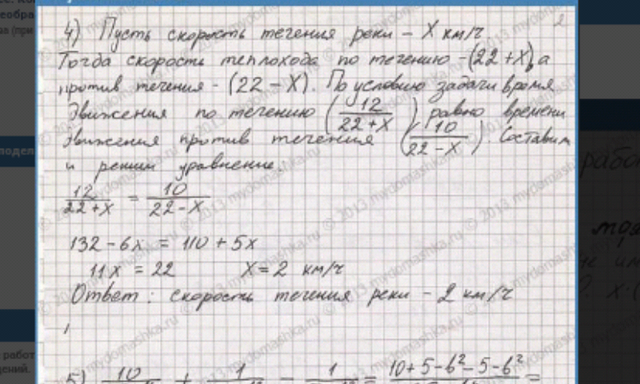 4) Пусть скорость течения реки - X км/ч
Тогда скорость теплохода по течению - (22+X), а
против течения - (22 - X). По условию задачи время
движения по течению (12/22+X) равно времени
движения против течения (10/22-X) Составим
и решим уравнение.
12/22+X = 10/22-X
132 - 6x = 110 + 5x
11x = 22 X = 2 км/ч
Ответ: скорость течения реки - 2 км/ч
5) 10 + 1 - 1 = 10+5-b²-5-b² =
© 2013 mydomashka.ru